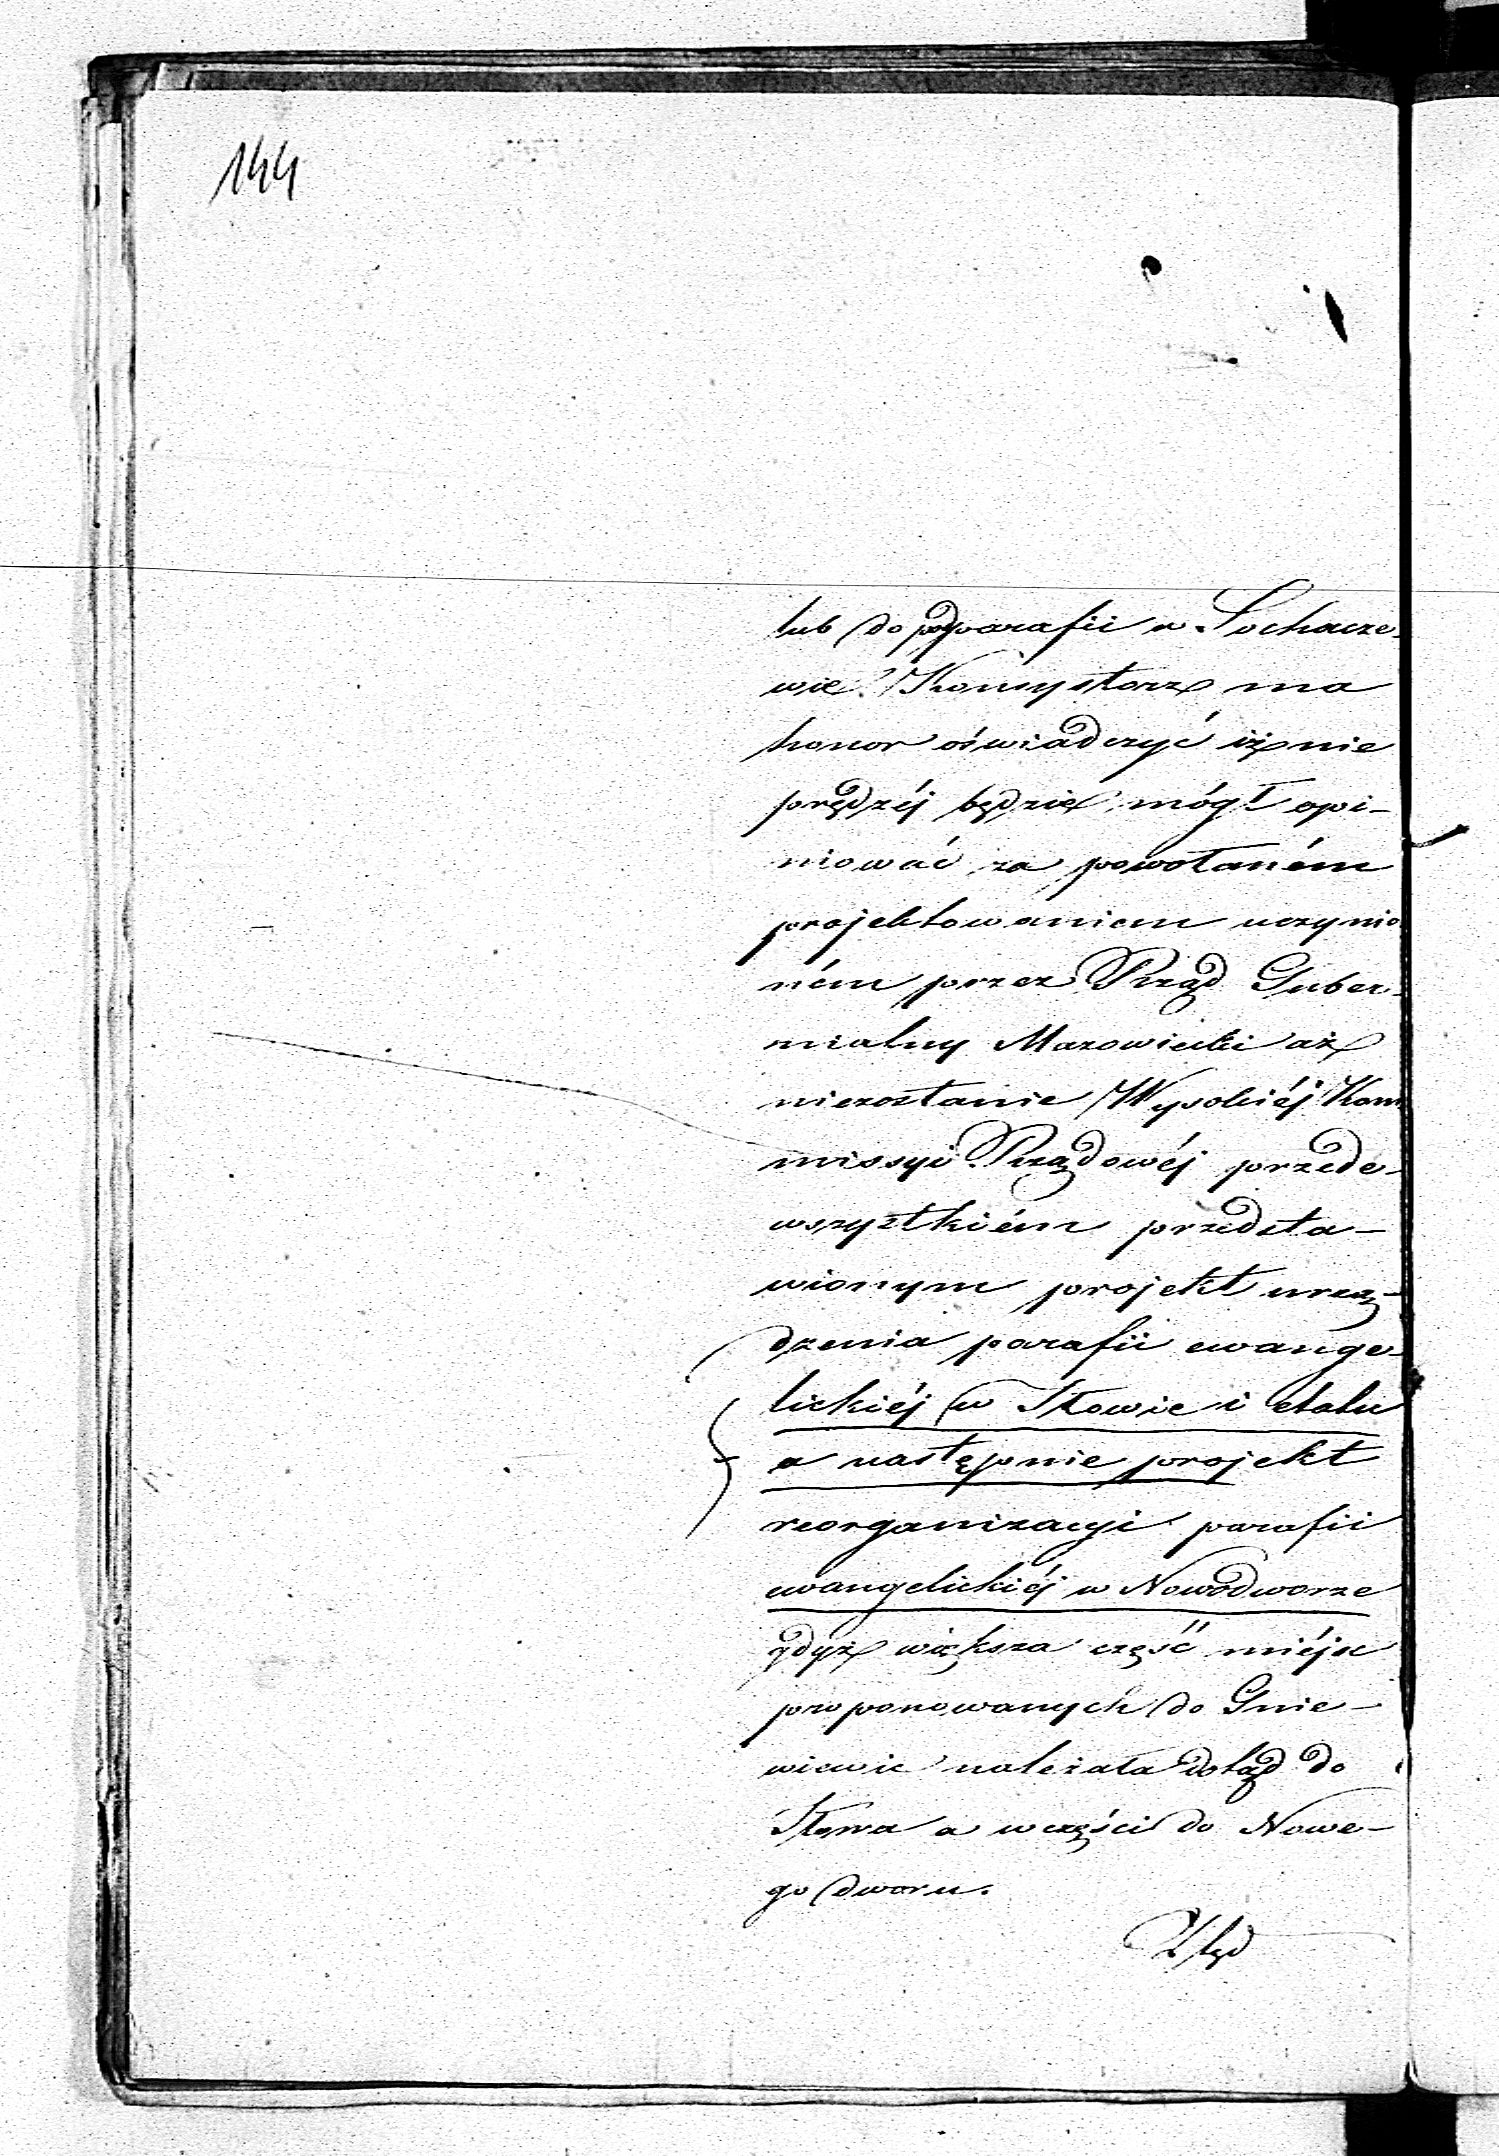 144
lub do parafii w Sochacze-
wie? Konsystorz ma
honor oświadczyć iż nie
prędzéj będzie mógł opi-
niować za powołaném
projektowaniem uczynio
ném przez Rząd Guber-
nialny Mazowiecki aż
niezostanie Wysokiéj Kom
missyi Rządowéj przede-
wszystkiém przedsta-
wionym projekt urzą-
dzenia parafii ewange-
lickiéj w Iłowie i etatu
a następnie projekt
reorganizacyi parafii
ewangelickiéj w Nowodworze
gdyż większa część miéjsc
proponowanych do Gnie-
wiewic należała dotąd do
Iłowa a w części do Nowe-
go dworu.
Ztąd